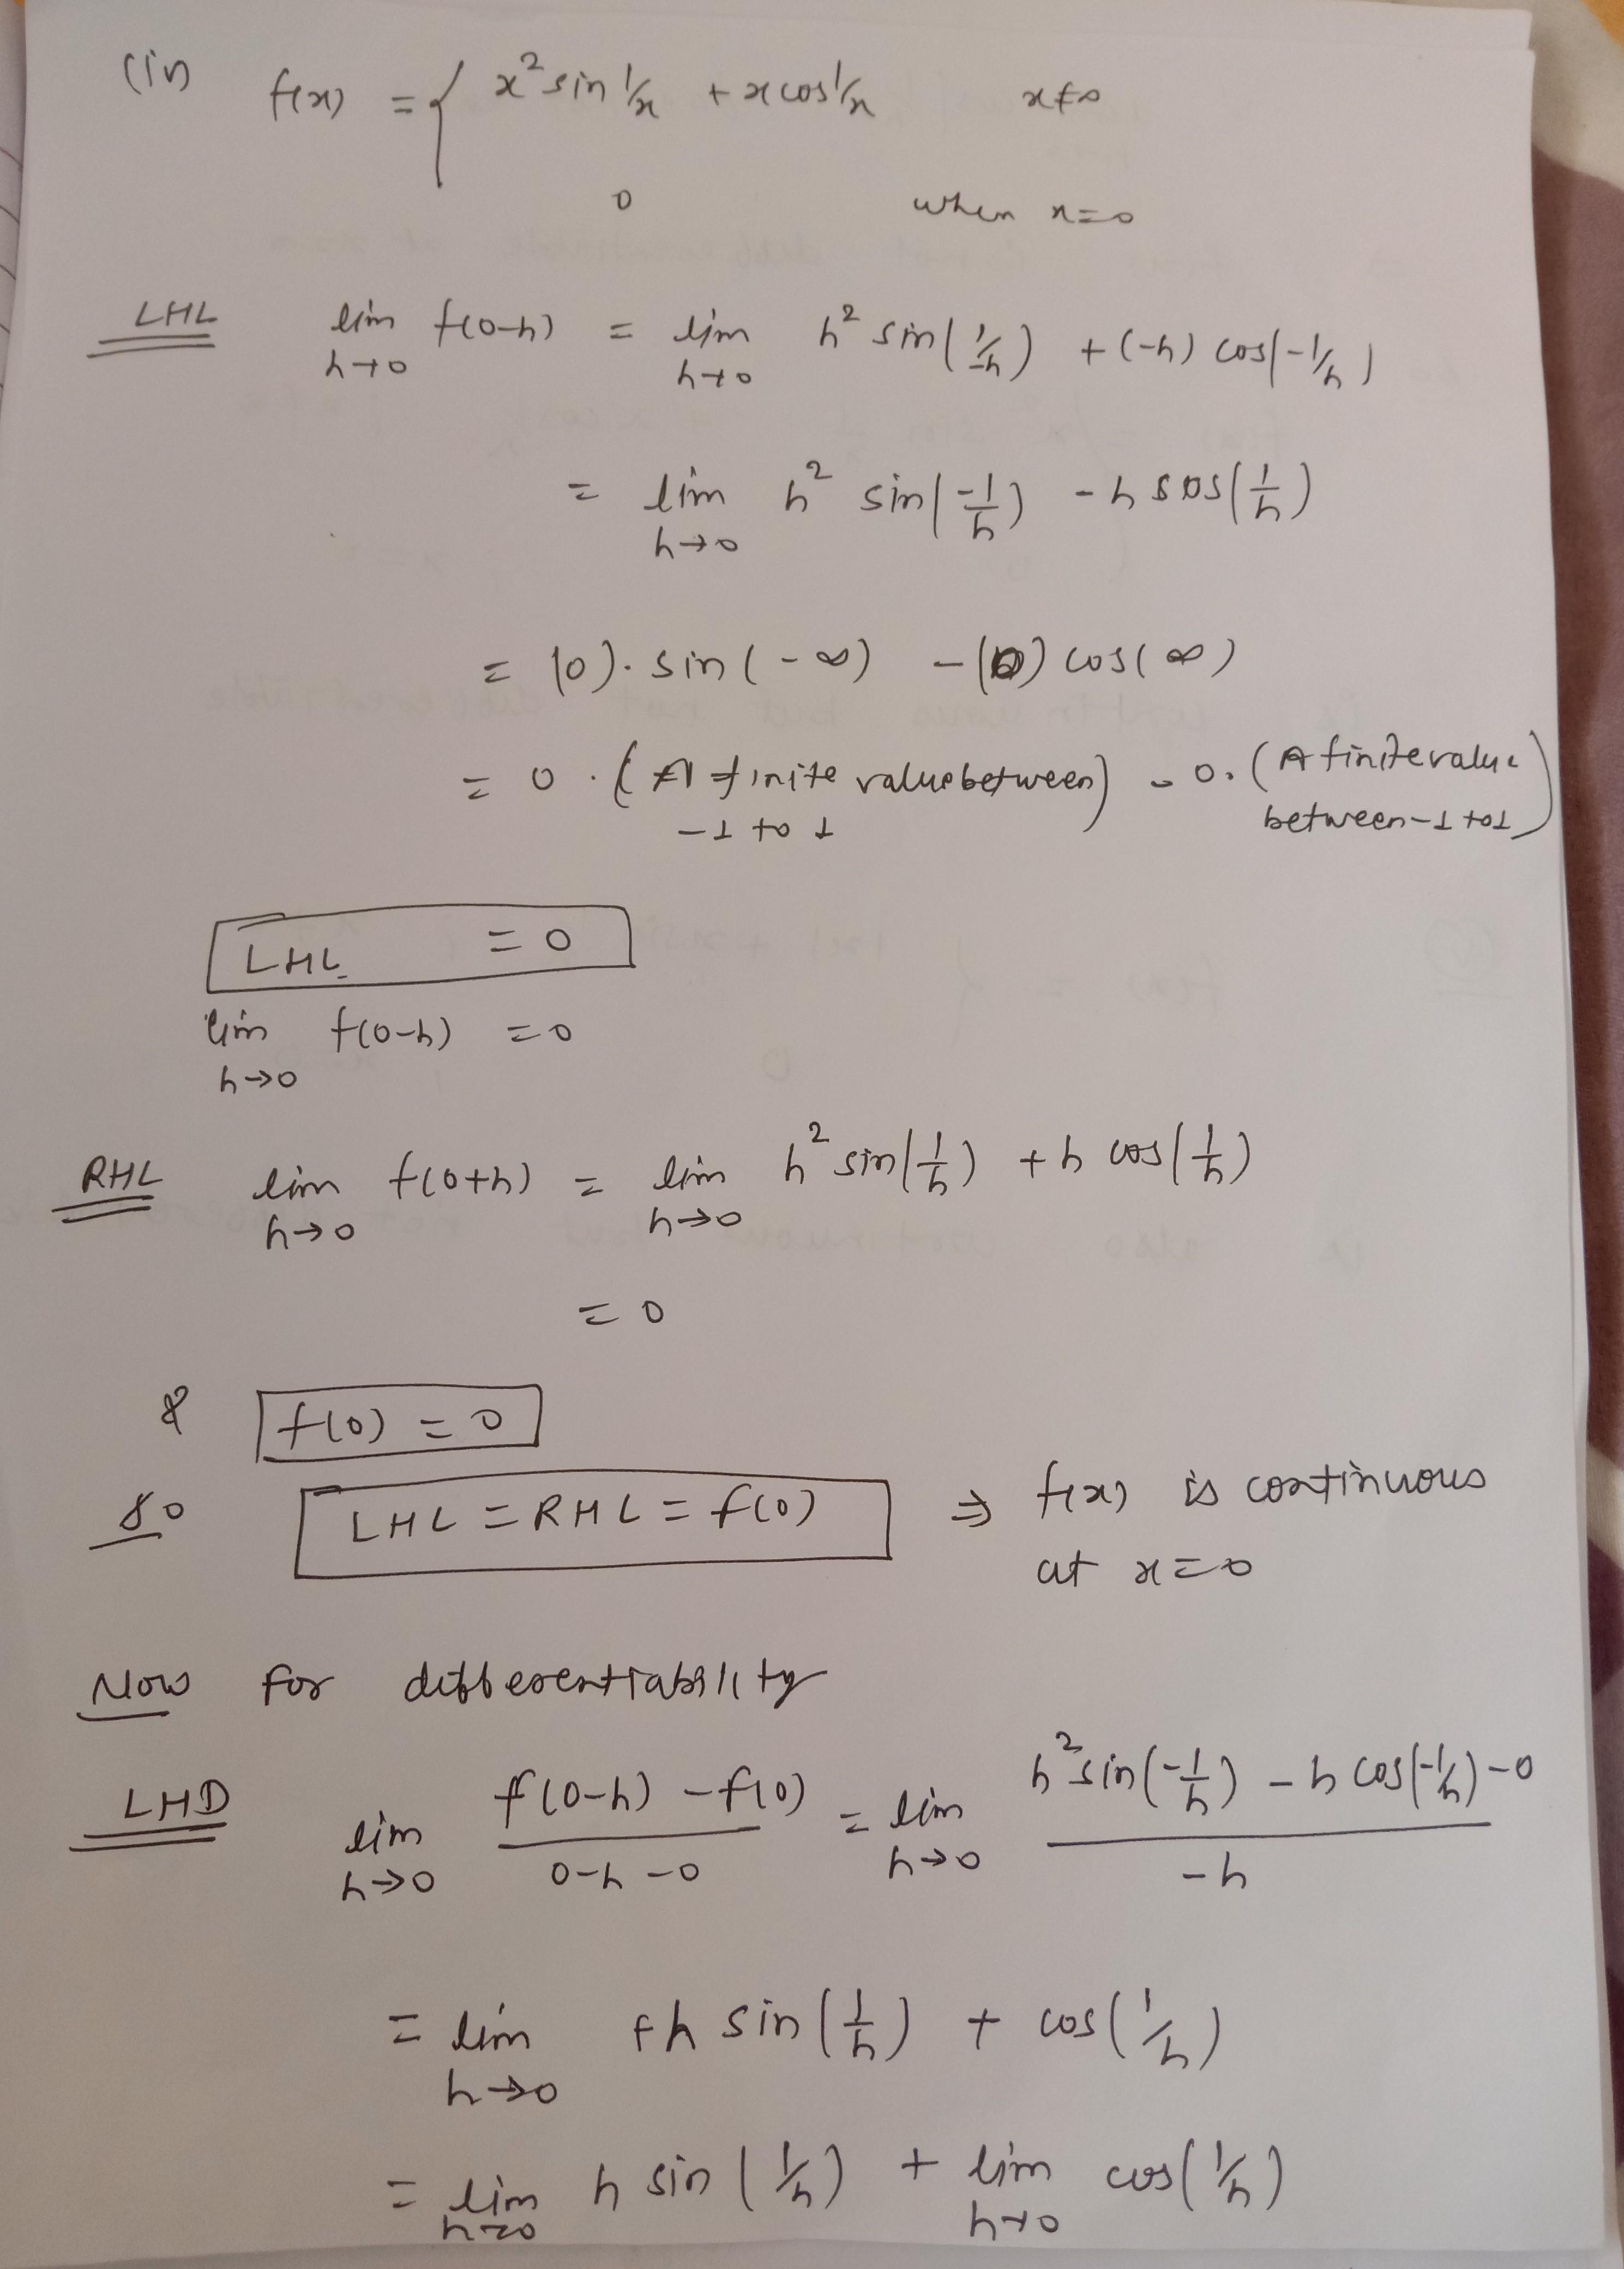 (ii) f(x) = { x² sin 1/x + x cos 1/x x≠0
0 when x=0
LHL lim h→0 f(0-h) = lim h→0 h² sin(1/-h) + (-h) cos(-1/h)
= lim h→0 h² sin(-1/h) - h cos(1/h)
= (0). sin(-∞) - (0) cos(∞)
= 0 . (A finite value between -1 to 1) - 0. (A finite value between -1 to 1)
LHL = 0
lim h→0 f(0-h) = 0
RHL lim h→0 f(0+h) = lim h→0 h² sin(1/h) + h cos(1/h)
= 0
& f(0) = 0
So LHL = RHL = f(0) ⇒ f(x) is continuous
at x=0
Now for differentiability
LHD lim h→0 f(0-h) - f(0) / 0-h-0 = lim h→0 h² sin(-1/h) - h cos(-1/h) - 0 / -h
= lim h→0 +h sin(1/h) + cos(1/h)
= lim h→0 h sin(1/h) + lim h→0 cos(1/h)